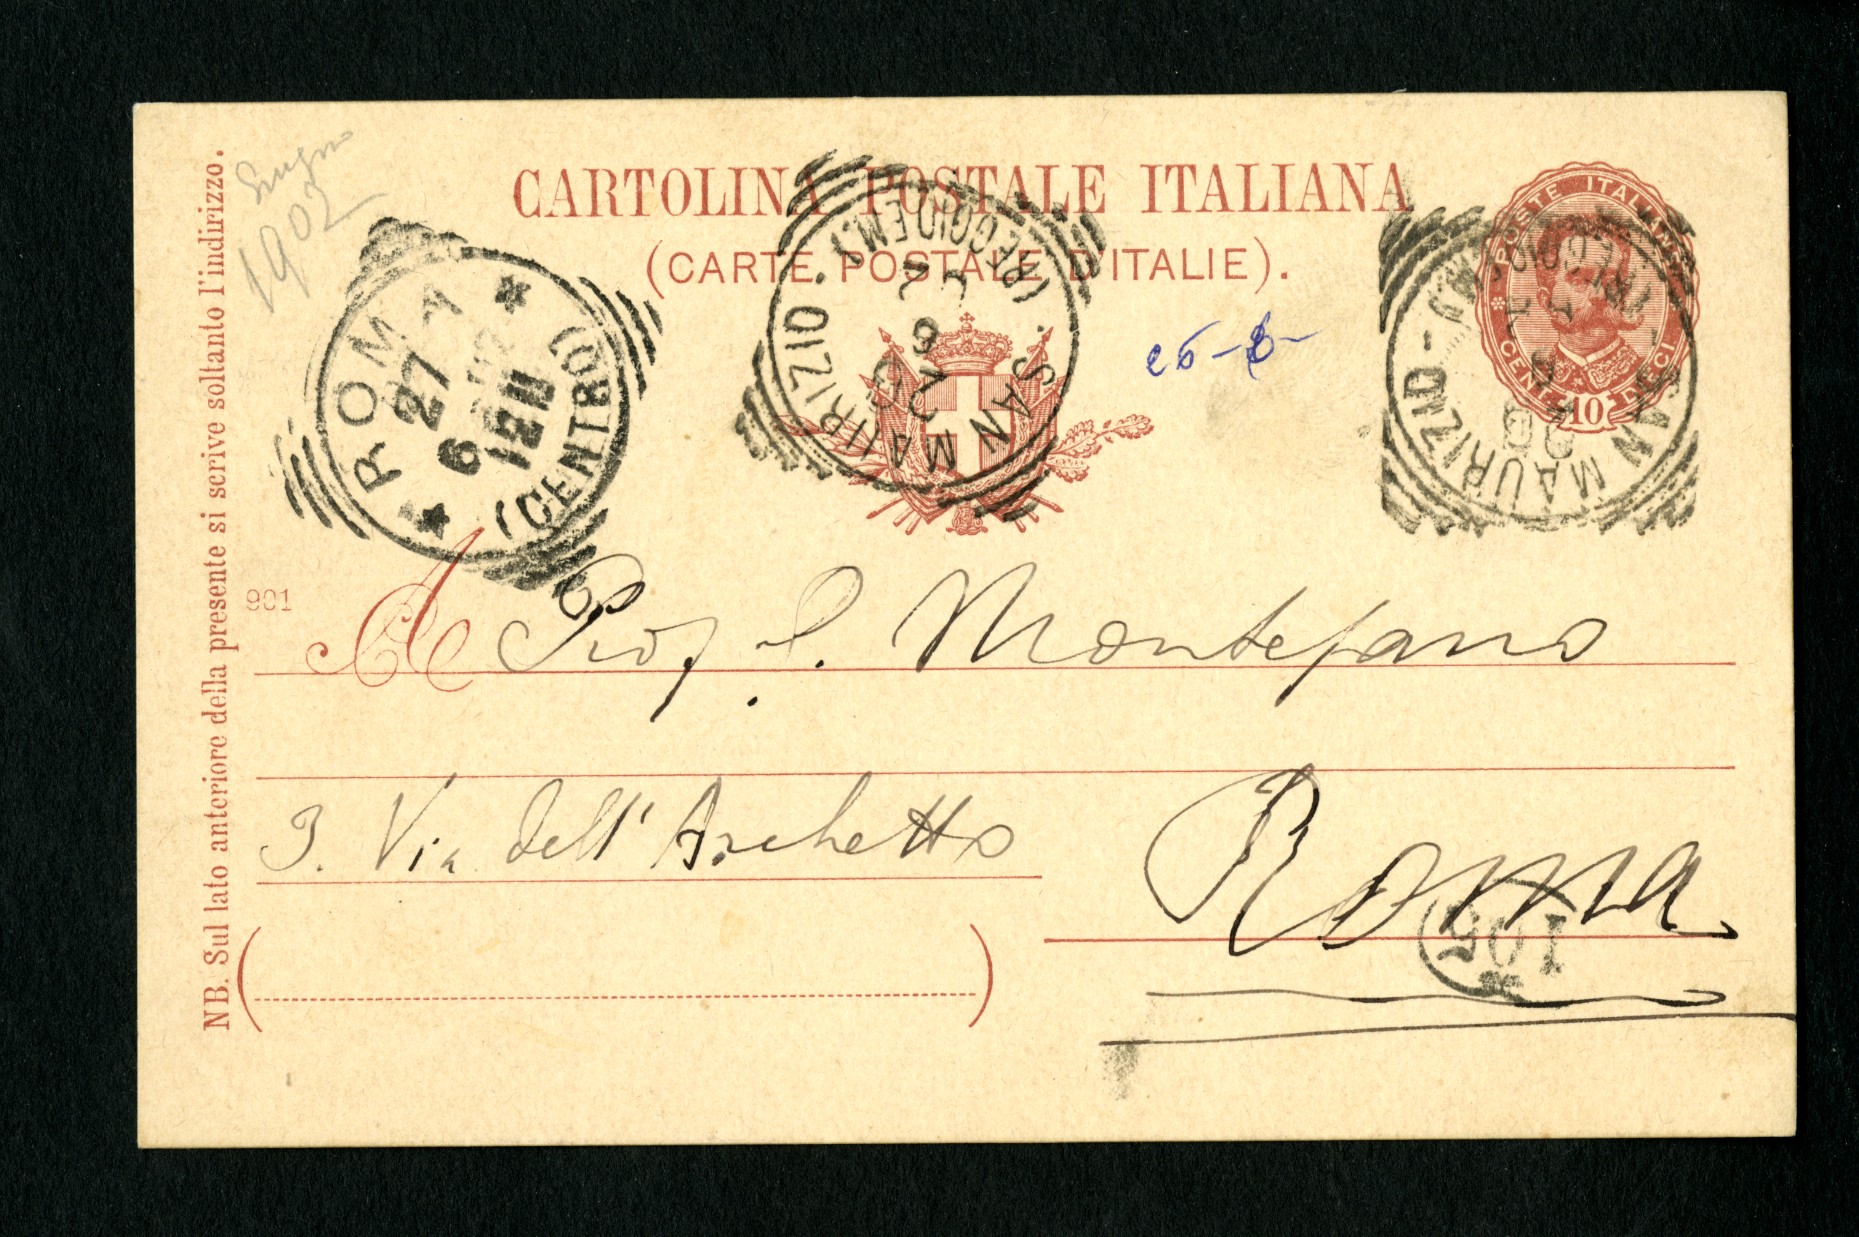 NB. Sul lato anteriore della presente si scrive soltanto l'indirizzo.
Giugno
1902
CARTOLINA POSTALE ITALIANA
(CARTE POSTALE D'ITALIE).
POSTE ITALIANE
CENT. 10 DIECI
ROMA
27
6
12 U
(CENTRO)
SAN MAURIZIO
(REGGIO EM.)
6
SAN MAURIZIO
(REGGIO EM.)
901
A Prof. L. Montefano
3. Via dell'Archetto
Roma
105